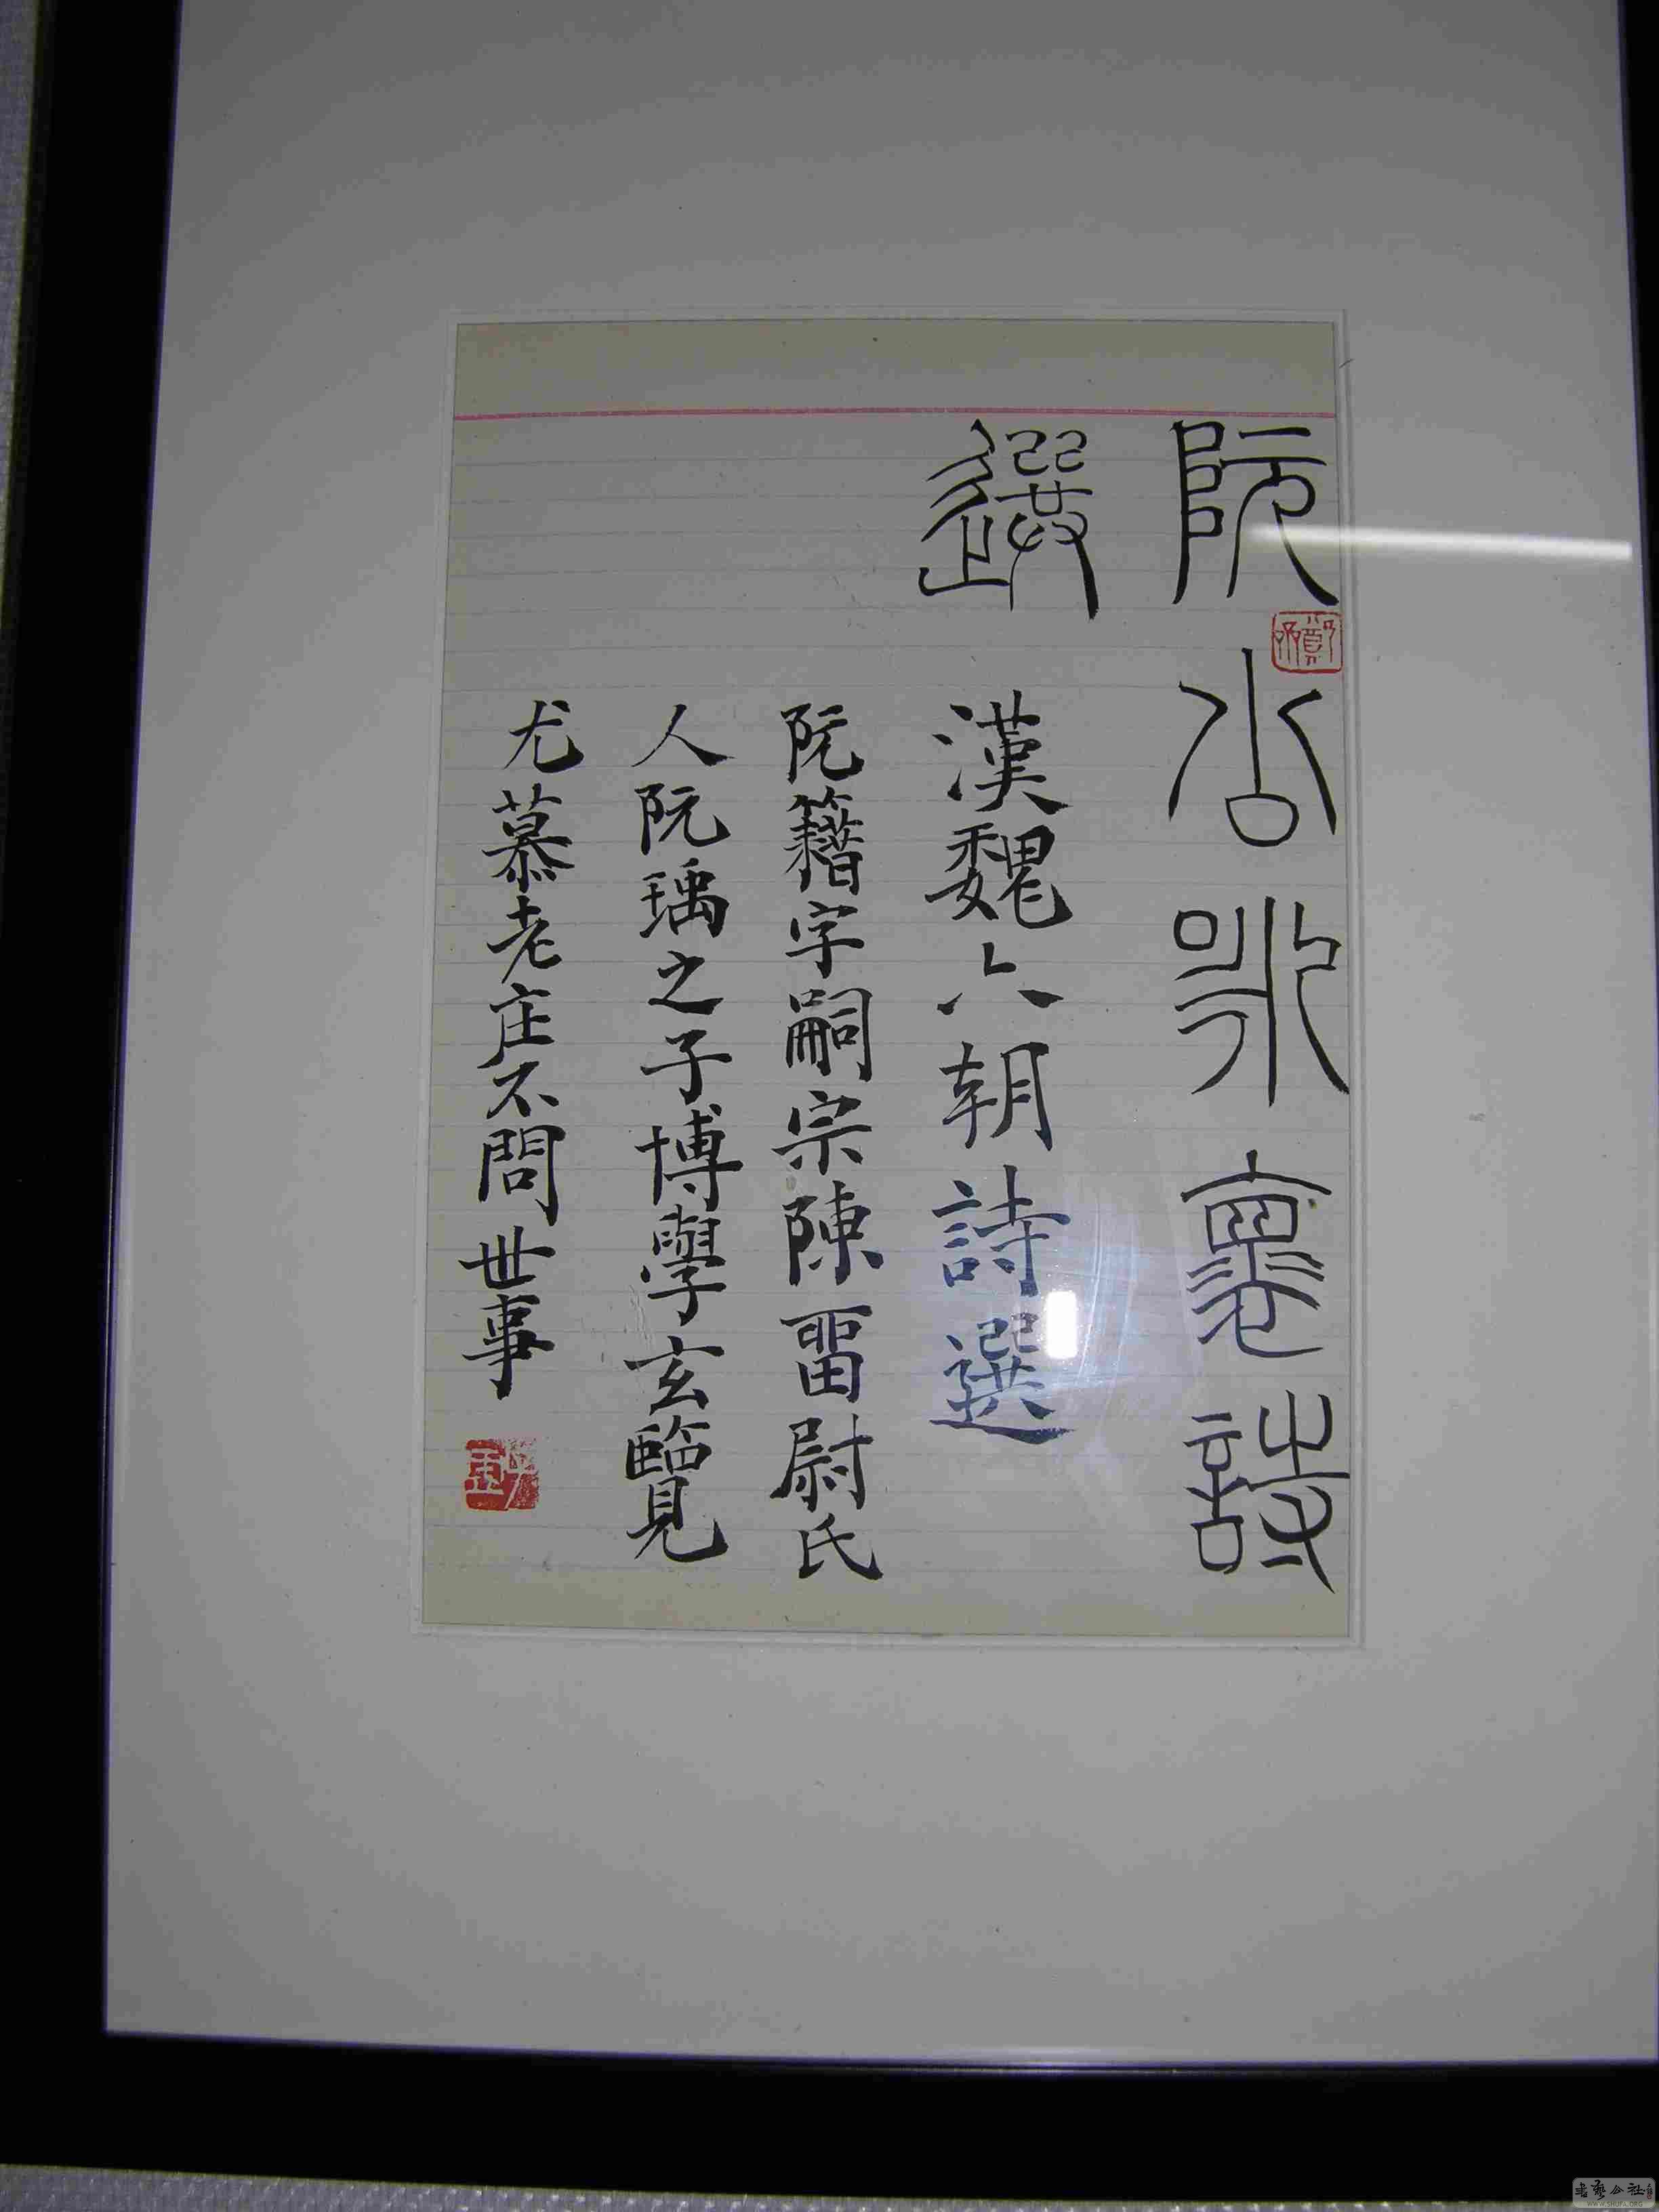 阮公詠懷詩
選
漢魏六朝詩選
阮籍字嗣宗陳畱尉氏
人阮瑀之子博學玄覽
尤慕老庄不問世事
書藝公社
WWW.SHUFA.ORG